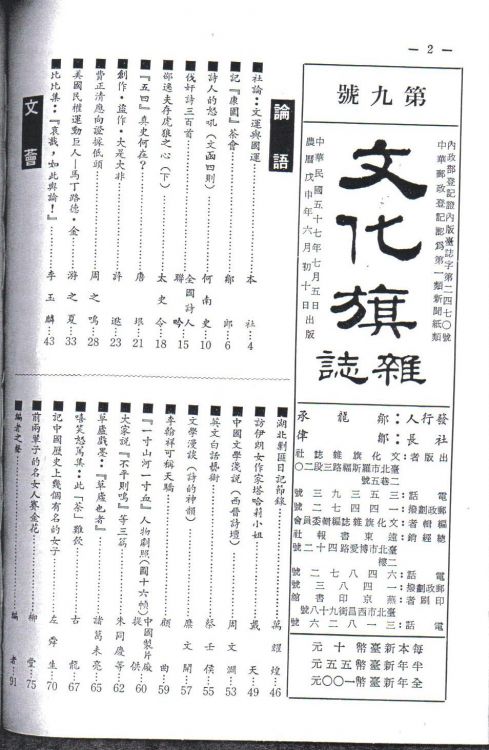 — 2 —
第九號
內政部登記證內版臺誌字第二四七〇號
中華郵政登記認為第一類新聞紙類
文化旗
雜誌
中華民國五十七年七月五日出版
農曆戊申年六月初十日
發行人：鄒龍承
社長：鄒律
出版者：文化旗雜誌社
臺北市羅斯福路三段二〇二巷五號
電話：三五三九三號
郵政劃撥：一四四七二號
編輯者：文化旗雜誌編輯委員會
總經銷：遠東書報社
臺北市博愛路四十二號二樓
電話：二四六八七二號
郵政劃撥：一四八三號
印刷者：燕京印書館
臺北市西昌街九十八號
電話：三一八二六號
每本新臺幣十元
半年新臺幣五五元
全年新臺幣一〇〇元
論語
社論：文運與國運………本社…4
記『康園』茶會………鄒郎…6
詩人的怒吼（文函四則）………何南史…10
伐奸詩三百首………全國詩人聯吟…15
鄧通夫存虎狼之心（下）………太史令…18
『五四』真史何在？………唐琅…21
創作·盜作·大是大非………許逖…23
費正清應向證據低頭………周之鳴…28
美國民權運動巨人—馬丁路德·金………游之夏…33
比比集：『哀哉，如此輿論！』………李玉麟…43
文薈
湖北剿匪日記節錄………萬耀煌…46
訪伊朗女作家塔哈莉小姐………戴天…49
中國文學淺說（西晉詩壇）………周文淵…53
英文白話藝術………蔡壬侯…55
文學漫談（詩的神韻）………糜文開…57
李翰祥可稱天驕………顧曲…59
『一寸山河一寸血』人物劇照（圖十六幀）………中國製片廠提供…60
大家說『不平則鳴』等三篇………朱同慶等…62
草廬戲墨：『草廬也者』………諸葛未亮…65
嘻笑怒罵集：此「茶」難飲………古龍…67
記中國歷史上幾個有名的女子………左舜生…70
前兩單子的名女人賽金花………柳堂…75
編者之聲………編者…91